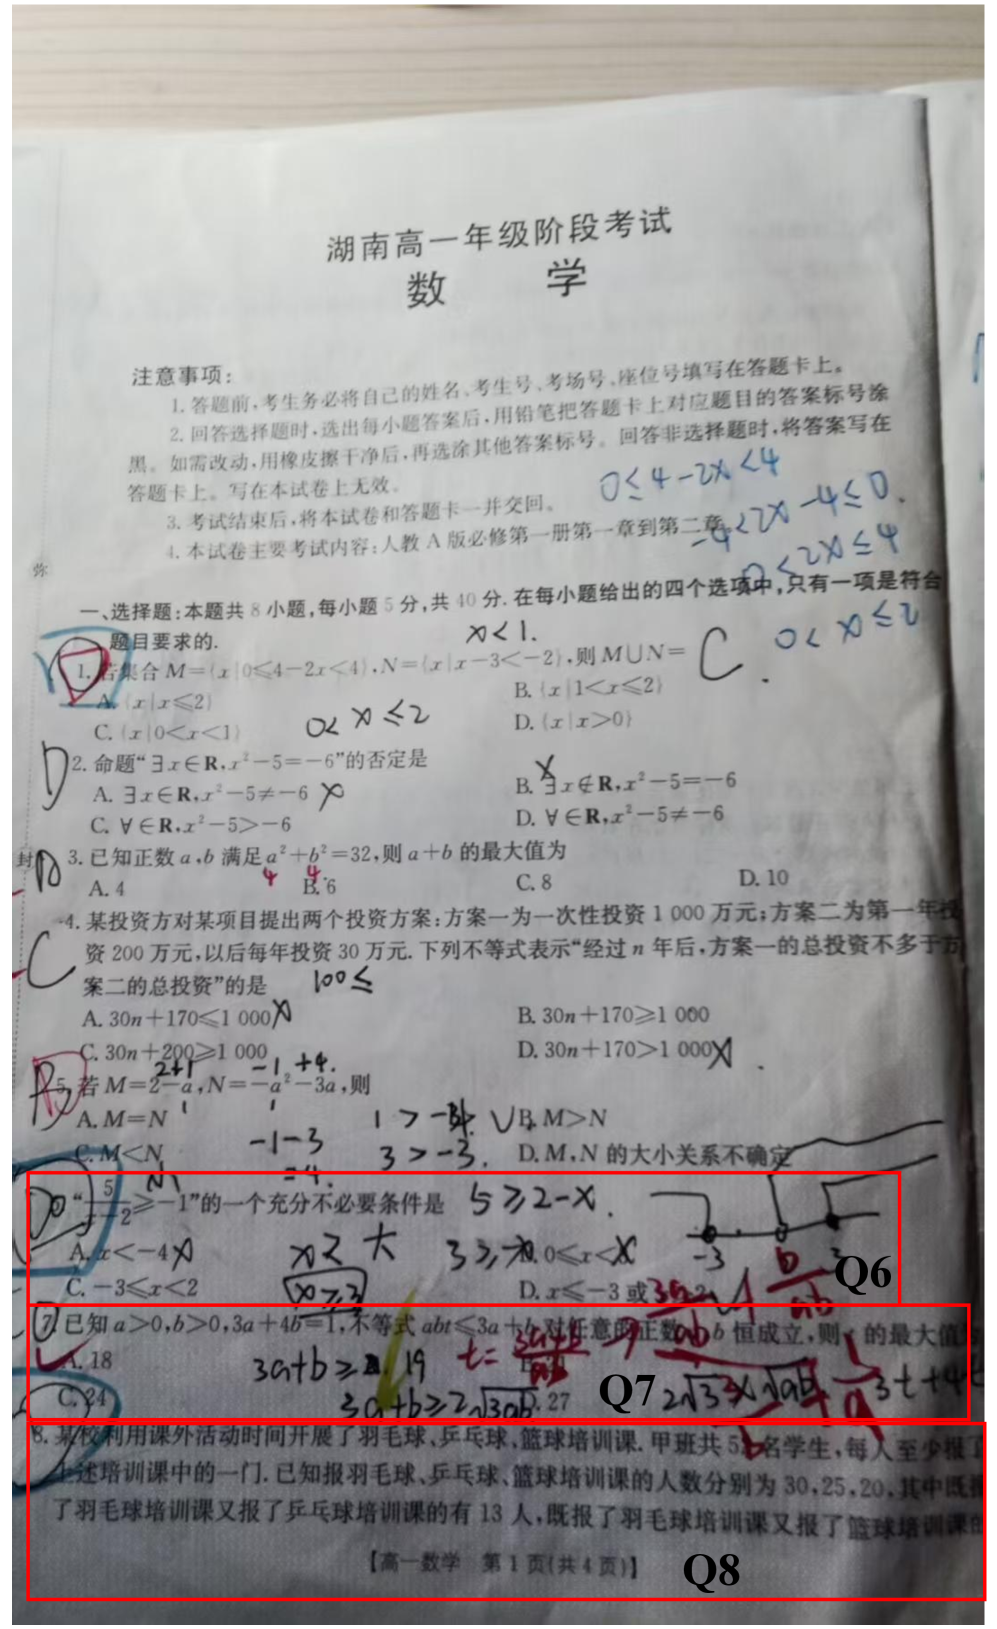 湖南高一年级阶段考试
数 学
注意事项:
1.答题前,考生务必将自己的姓名、考生号、考场号、座位号填写在答题卡上。
2.回答选择题时,选出每小题答案后,用铅笔把答题卡上对应题目的答案标号涂
黑。如需改动,用橡皮擦干净后,再选涂其他答案标号。回答非选择题时,将答案写在
答题卡上。写在本试卷上无效。
0≤4-2x<4
3.考试结束后,将本试卷和答题卡一并交回。
-4<2x-4≤0.
4.本试卷主要考试内容:人教A版必修第一册第一章到第二章
0<2x≤4
弥
一、选择题:本题共8小题,每小题5分,共40分.在每小题给出的四个选项中,只有一项是符合
题目要求的.
x<1.
0<x≤2
1.若集合M={x|0≤4-2x<4},N={x|x-3<-2},则M∪N= C.
A.{x|x≤2}
B.{x|1<x≤2}
C.{x|0<x<1}
0<x≤2
D.{x|x>0}
D 2.命题“∃x∈R,x²-5=-6”的否定是
A.∃x∈R,x²-5≠-6
B.∃x∉R,x²-5=-6
C.∀∈R,x²-5>-6
D.∀∈R,x²-5≠-6
封
3.已知正数a,b满足a²+b²=32,则a+b的最大值为
4 4
A.4
B.6
C.8
D.10
4.某投资方对某项目提出两个投资方案:方案一为一次性投资1 000万元;方案二为第一年投
C
资200万元,以后每年投资30万元.下列不等式表示“经过n年后,方案一的总投资不多于方
案二的总投资”的是
100≤
A.30n+170≤1 000
B.30n+170≥1 000
C.30n+200≥1 000
D.30n+170>1 000
2+1 -1+4.
5.若M=2-a,N=-a²-3a,则
A.M=N
B.M>N
-1-3
3>-3.
C.M<N
D.M,N的大小关系不确定
“5/x-2≥-1”的一个充分不必要条件是
5≥2-x.
A.x<-4
-3
C.-3≤x<2
x≥3
D.x≤-3或
Q6
7.已知a>0,b>0,3a+4b=1,不等式abt≤3a+b对任意的正数 b恒成立,则 的最大值为
A.18
3a+b≥ 19
C.24
3a+b≥2√3ab
27
Q7
8.某校利用课外活动时间开展了羽毛球、乒乓球、篮球培训课.甲班共5 名学生,每人至少报了
上述培训课中的一门.已知报羽毛球、乒乓球、篮球培训课的人数分别为30,25,20,其中既报
了羽毛球培训课又报了乒乓球培训课的有13人,既报了羽毛球培训课又报了篮球培训课的
【高一数学 第1页(共4页)】
Q8